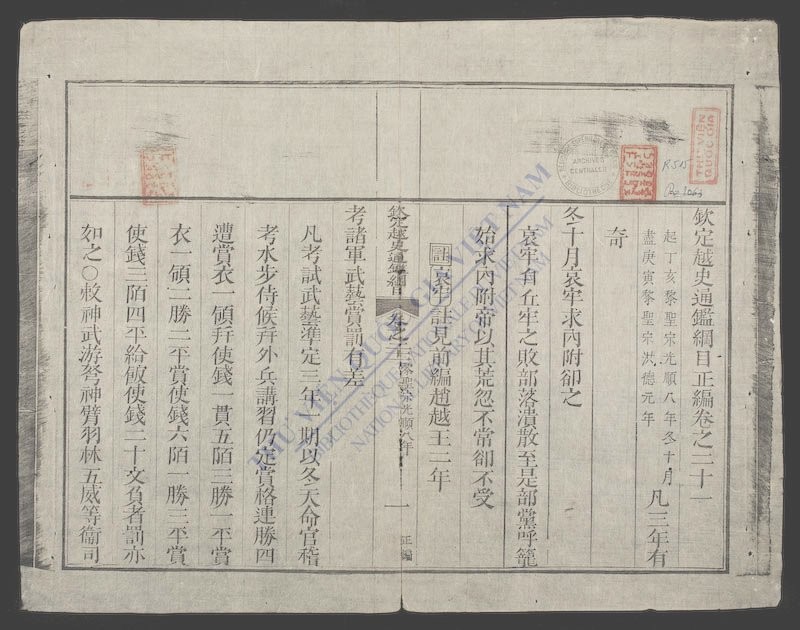 欽定越史通鑑綱目正編卷之二十一
起丁亥黎聖宗光順八年冬十月
盡庚寅黎聖宗洪德元年
凡三年有
奇
冬十月哀牢求內附卻之
哀牢自丘牢之敗部落潰散至是部黨呼籠
始求內附帝以其荒忽不常卻不受
註哀牢註見前編趙越王二年
欽定越史通鑑綱目
卷之二十一
黎聖宗光順八年
一
正編
考諸軍武藝賞罰有差
凡考試武藝準定三年一期以冬天命官稽
考水步侍候幷外兵講習仍定賞格連勝四
遭賞衣一領幷使錢一貫五陌三勝一平賞
衣一領二勝二平賞使錢六陌一勝三平賞
使錢三陌四平給敏使錢二十文負者罰亦
如之○敕神武游弩神臂羽林五威等衞司
THƯ VIỆN QUỐC GIA VIỆT NAM
BIBLIOTHÈQUE NATIONALE DU VIETNAM
NATIONAL LIBRARY OF VIETNAM
THƯ VIỆN
QUỐC GIA
ARCHIVES
CENTRALES
R 515